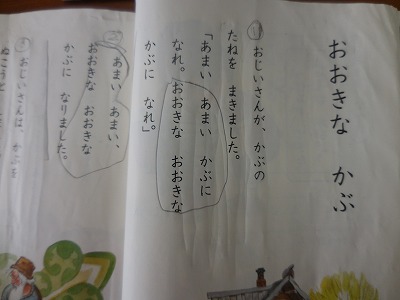 おおきな　かぶ
①おじいさんが、かぶの
たねを　まきました。
「あまい　あまい　かぶに
なれ。おおきな　おおきな
かぶに　なれ。」
②あまい　あまい、
おおきな　おおきな
かぶに　なりました。
③おじいさんは、かぶを
ぬこうと